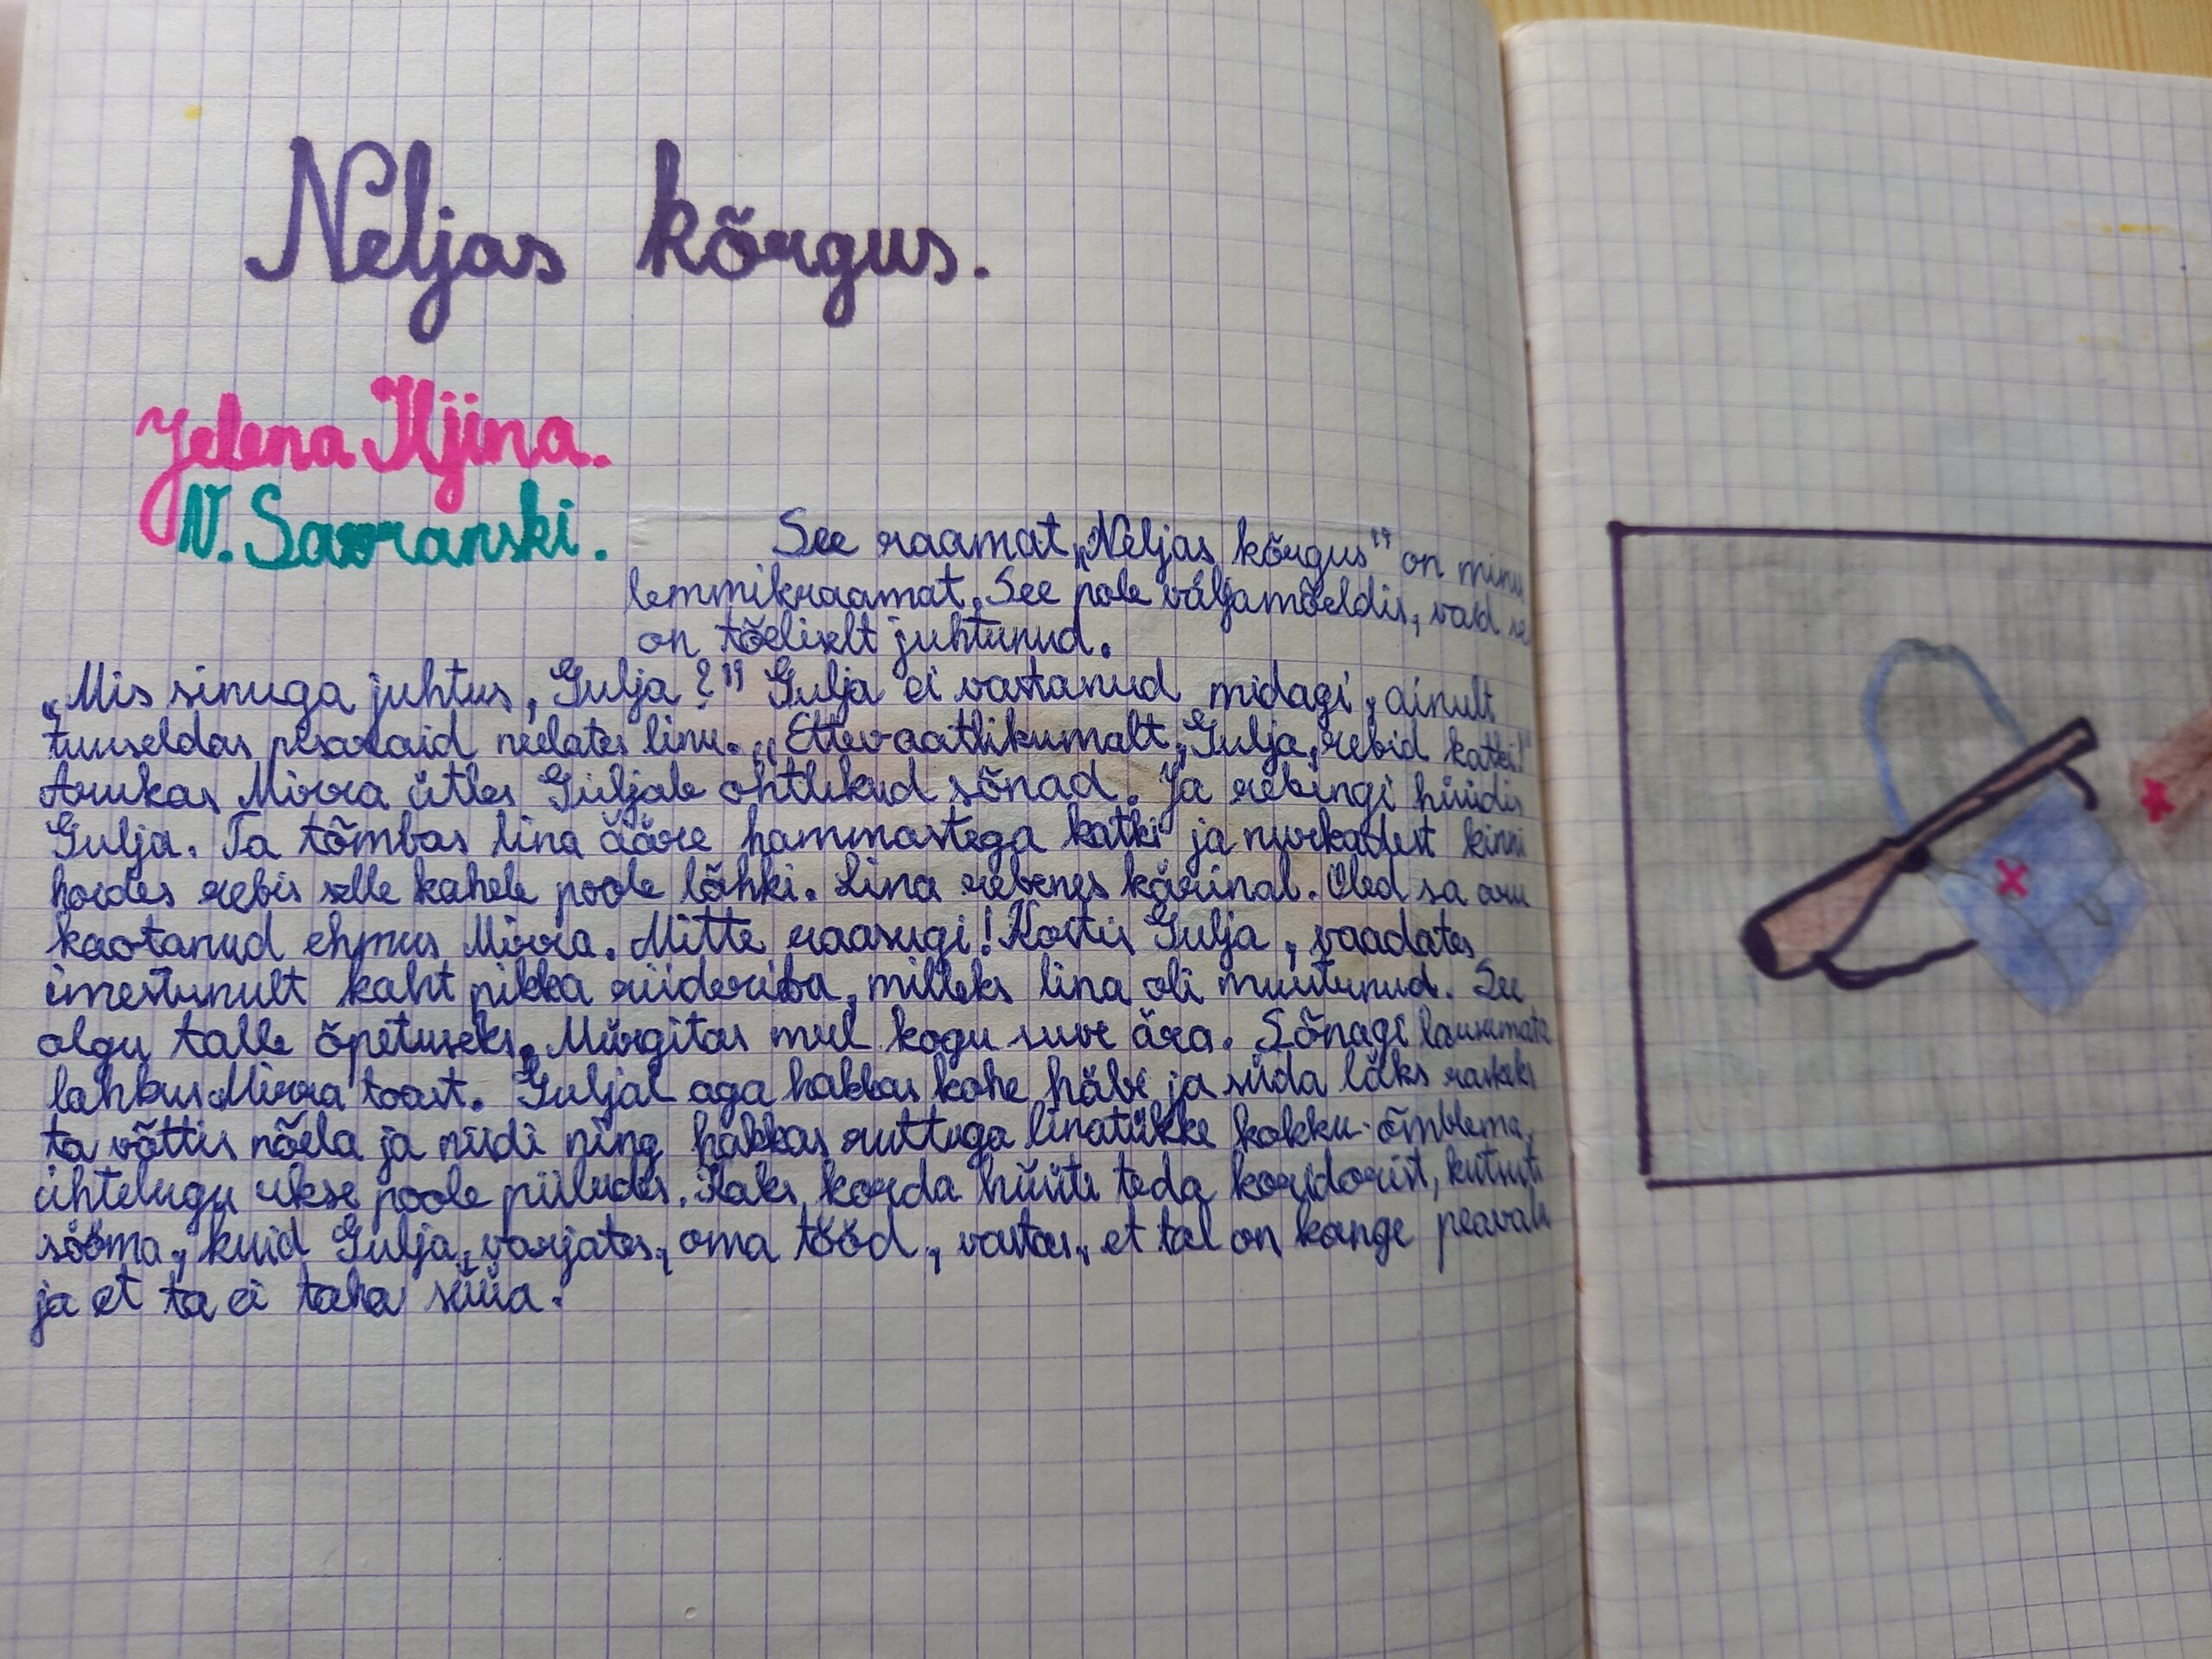 Neljas kõrgus.
Jelena Iljina.
N. Savranski.
See raamat „Neljas kõrgus" on minu
lemmikraamat. See pole väljamõeldis, vaid se
on tõeliselt juhtunud.
„Mis sinuga juhtus, Gulja?" Gulja ei vastanud midagi, ainult
tuuseldas pisaraid neelates linu. „Ettevaatlikumalt, Gulja, rebid katki!"
Arukas Mirra ütles Guljale ohtlikud sõnad. Ja rebingi hüüdis
Gulja. Ta tõmbas lina ääre hammastega katki ja nurkadest kinni
hoides rebis selle kahele poole lõhki. Lina rebenes kärinal. Oled sa aru
kaotanud ehmus Mirra. Mitte raasugi! Kostis Gulja, vaadates
imestunult kaht pikka riideriba, milleks lina oli muutunud. See
olgu talle õpetuseks. Mürgitas mul kogu suve ära. Sõnagi lausumata
lahkus Mirra toast. Guljal aga hakkas kohe häbi ja süda läks raskeks
ta võttis nõela ja niidi ning hakkas ruttuga linatükke kokku õmblema,
ühtelugu ukse poole piiludes. Kaks korda hüüti teda koridorist, kutsuti
sööma, kuid Gulja, varjates, oma tööd, vastas, et tal on kange peavalu
ja et ta ei taha süüa.